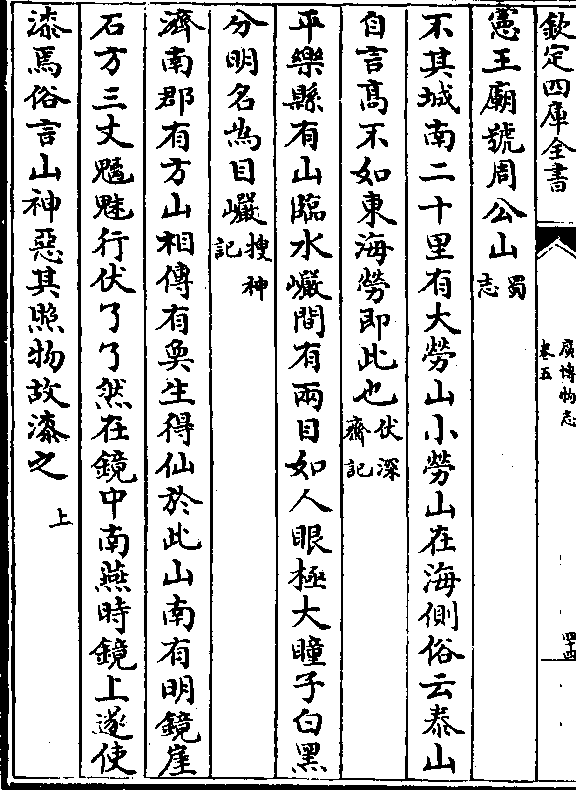 欽定四庫全書
廣博物志
卷五
四十四
憲王廟號周公山蜀志
不其城南二十里有大勞山小勞山在海側俗云泰山
自言髙不如東海勞即此也伏深齊記
平樂縣有山臨水巗間有兩目如人眼極大瞳子白黑
分明名為目巗搜神記
濟南郡有方山相傳有奐生得仙於此山南有明鏡崖
石方三丈魑魅行伏了了然在鏡中南燕時鏡上遂使
漆焉俗言山神惡其照物故漆之上